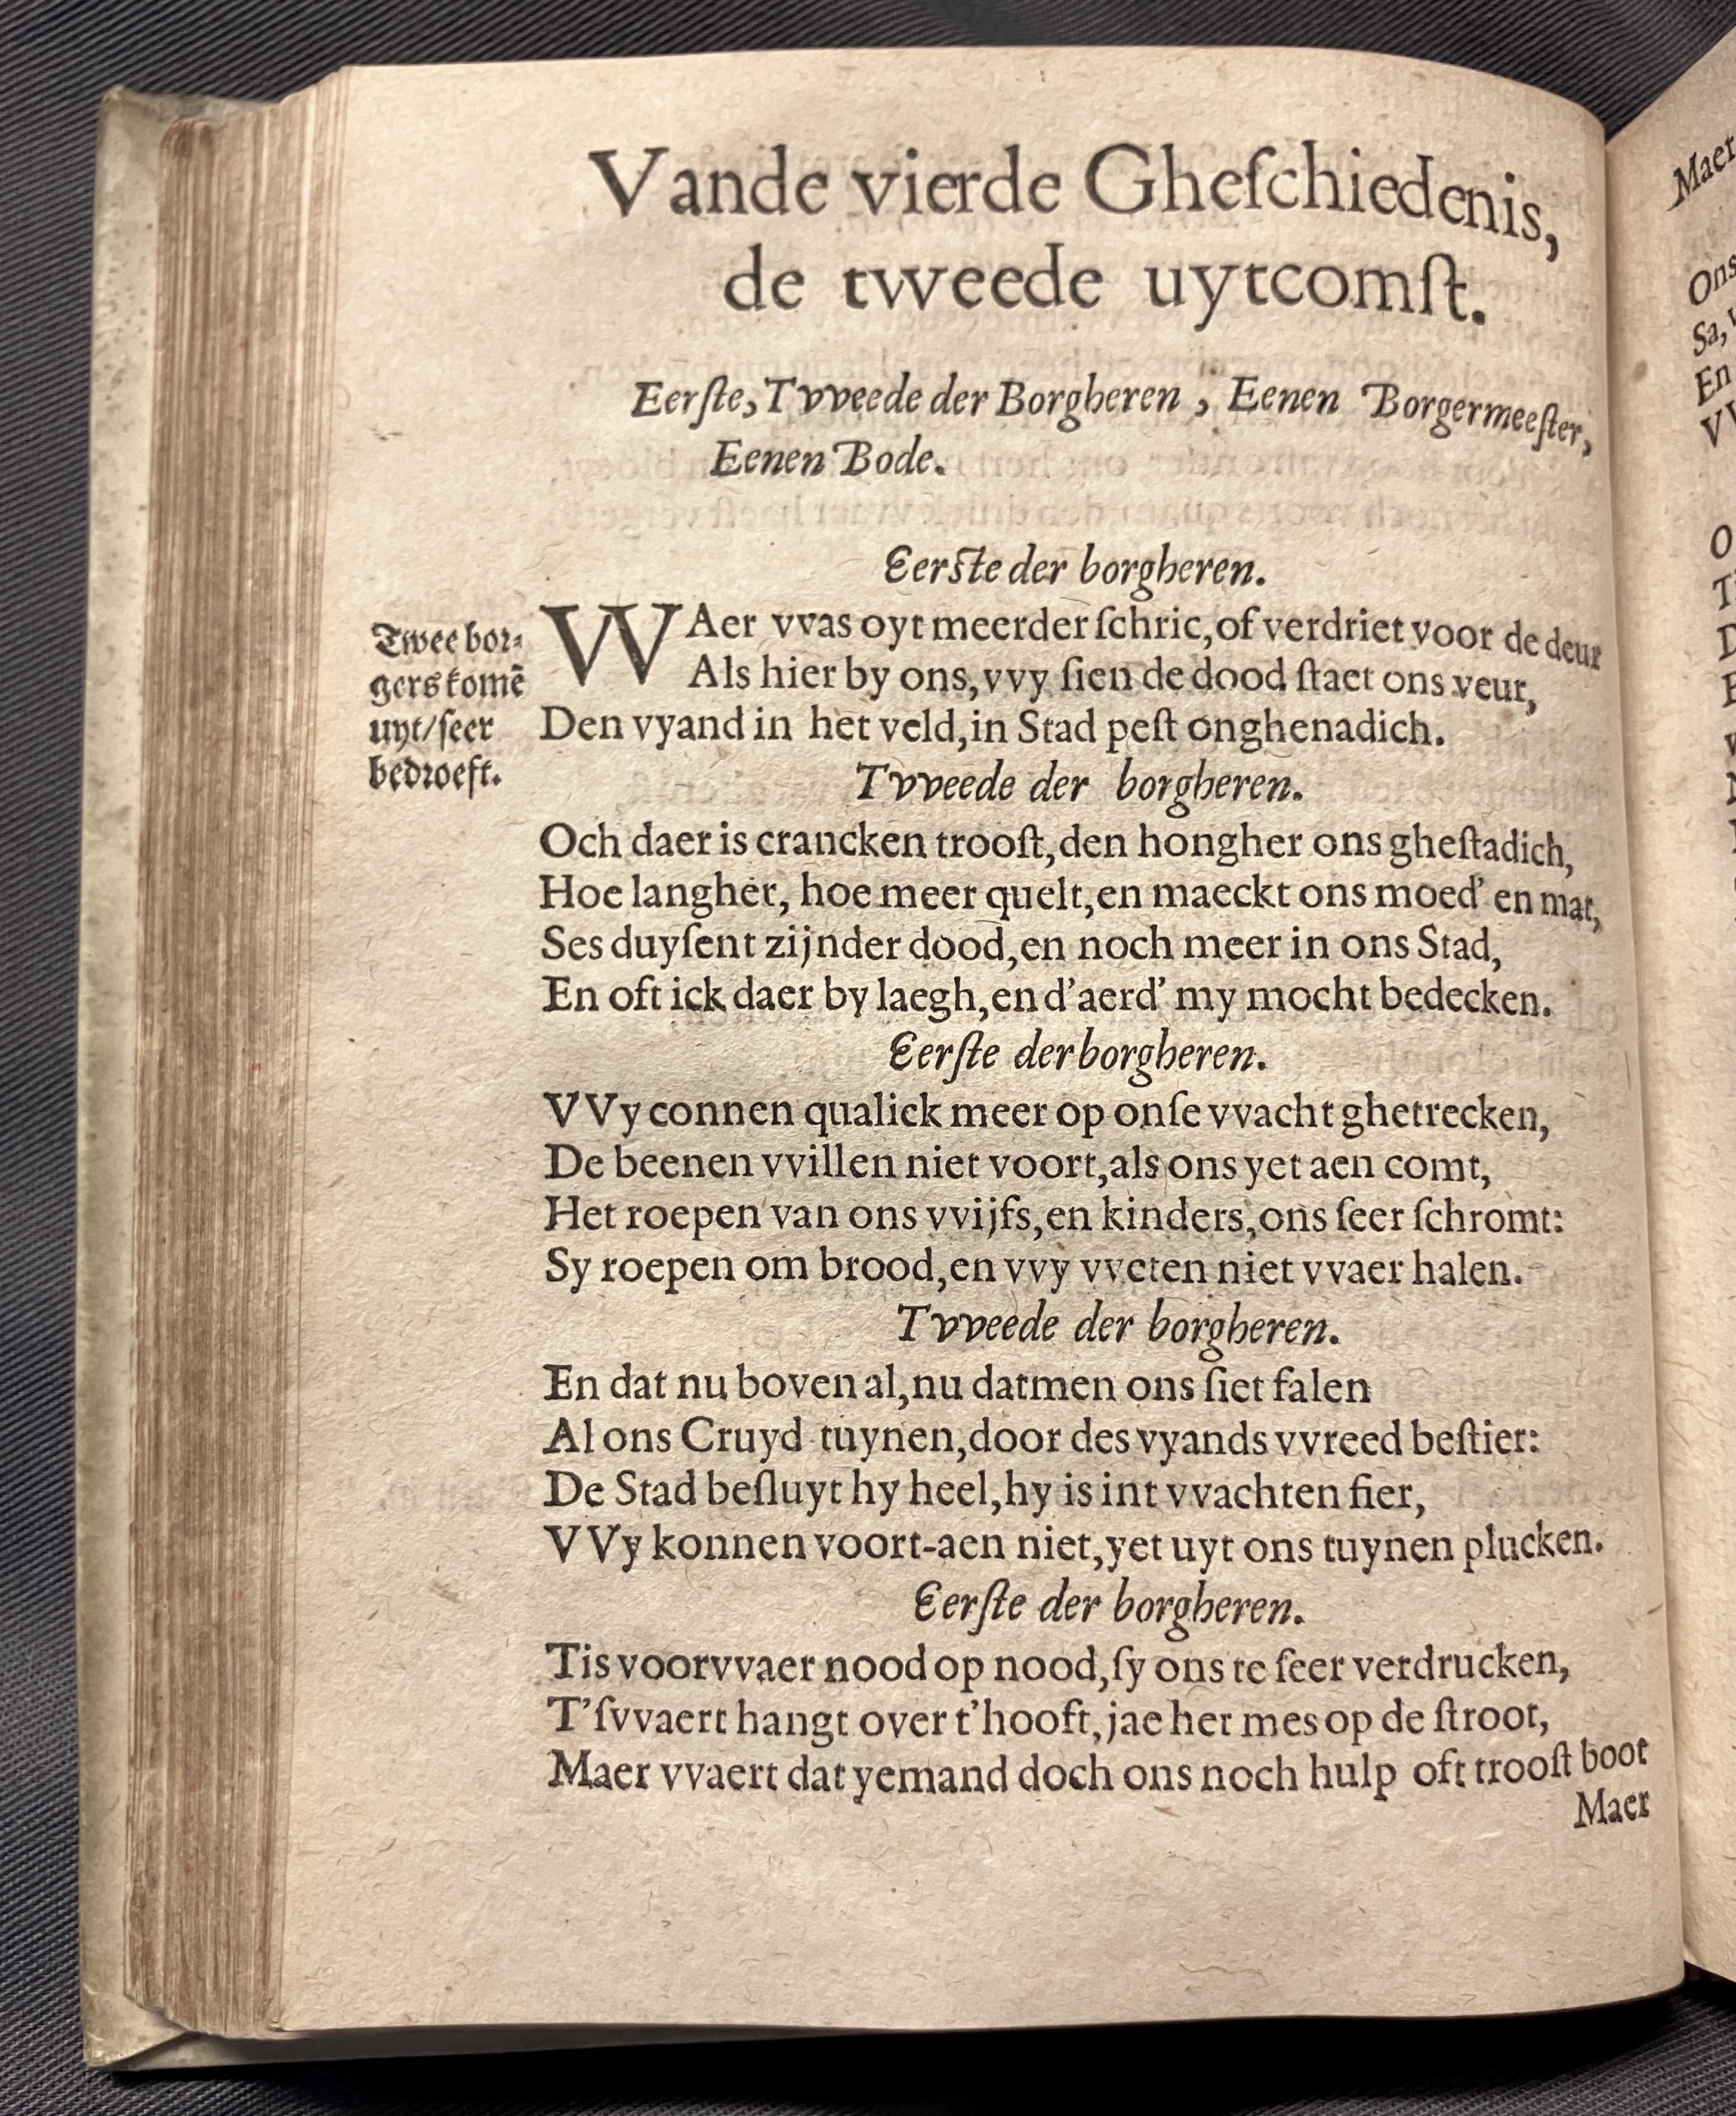 Vande vierde Gheſchiedenis,
de tvveede uytcomſt.
Eerſte, Tvveede der Borgheren, Eenen Borgermeeſter,
Eenen Bode.
Eerſte der borgheren.
Twee bor-
gers komē
uyt/ſeer
bedroeft.
WAer vvas oyt meerder ſchric, of verdriet voor de deur
Als hier by ons, vvy ſien de dood ſtaet ons veur,
Den vyand in het veld, in Stad peſt onghenadich.
Tvveede der borgheren.
Och daer is crancken trooſt, den hongher ons gheſtadich,
Hoe langher, hoe meer quelt, en maeckt ons moed' en mat,
Ses duyſent zijnder dood, en noch meer in ons Stad,
En oft ick daer by laegh, en d'aerd' my mocht bedecken.
Eerſte der borgheren.
VVy connen qualick meer op onſe vvacht ghetrecken,
De beenen vvillen niet voort, als ons yet aen comt,
Het roepen van ons vvijfs, en kinders, ons ſeer ſchromt:
Sy roepen om brood, en vvy vveten niet vvaer halen.
Tvveede der borgheren.
En dat nu boven al, nu datmen ons ſiet falen
Al ons Cruyd tuynen, door des vyands vvreed beſtier:
De Stad beſluyt hy heel, hy is int vvachten fier,
VVy konnen voort-aen niet, yet uyt ons tuynen plucken.
Eerſte der borgheren.
Tis voorvvaer nood op nood, ſy ons te ſeer verdrucken,
T'ſvvaert hangt over t'hooft, jae het mes op de ſtroot,
Maer vvaert dat yemand doch ons noch hulp oft trooſt boot
Maer
Maer
Ons
Sa,
En